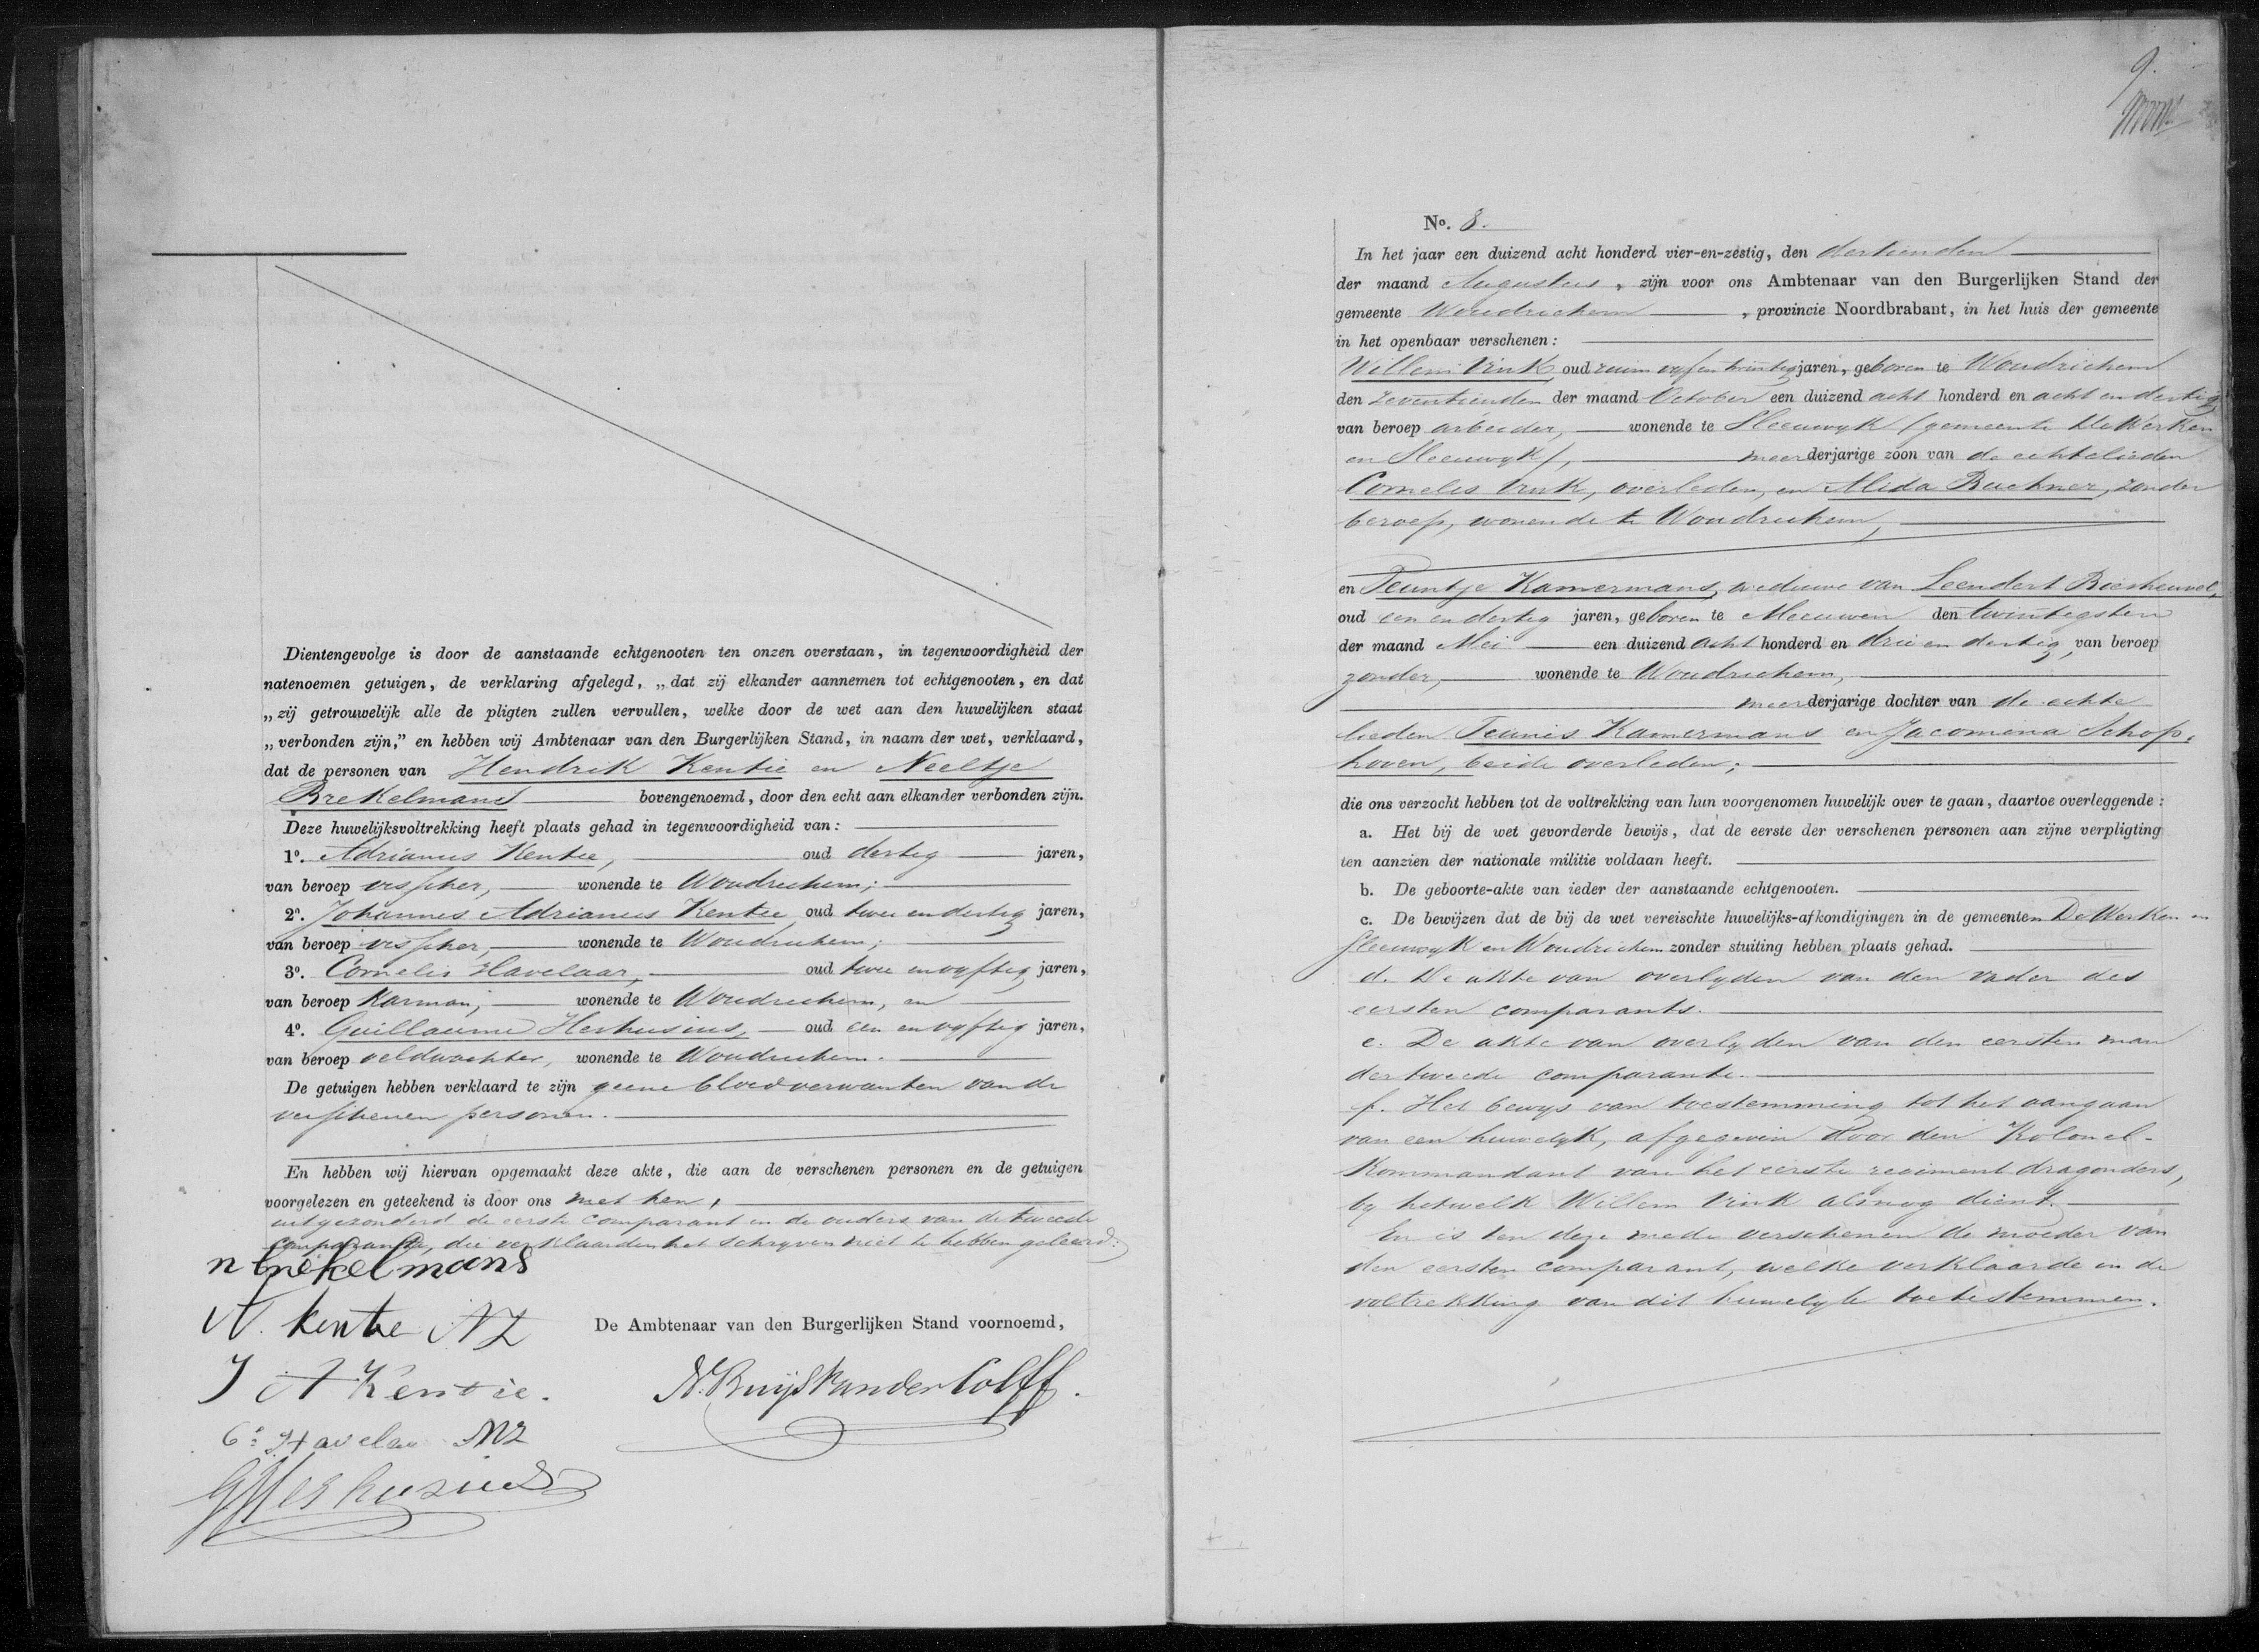 Dientengevolge is door de aanstaande echtgenooten ten onzen overstaan, in tegenwoordigheid der
natenoemen getuigen, de verklaring afgelegd, „dat zij elkander aannemen tot echtgenooten, en dat
„zij getrouwelijk alle de pligten zullen vervullen, welke door de wet aan den huwelijken staat
„verbonden zijn,” en hebben wij Ambtenaar van den Burgerlijken Stand, in naam der wet, verklaard,
dat de personen van Hendrik Kentie en Neeltje
Brekelmans bovengenoemd, door den echt aan elkander verbonden zijn.
Deze huwelijksvoltrekking heeft plaats gehad in tegenwoordigheid van:
1o. Adrianus Kentie, oud dertig jaren,
van beroep visscher, wonende te Woudrichem;
2o. Johannes Adrianus Kentie, oud twee en dertig jaren,
van beroep visscher, wonende te Woudrichem;
3o. Cornelis Havelaar, oud twee en vyftig jaren,
van beroep Karman, wonende te Woudrichem, en
4o. Guillaume Herhusius, oud een en vyftig jaren,
van beroep veldwachter, wonende te Woudrichem.
De getuigen hebben verklaard te zijn geene bloedverwanten van de
verschenen personen.
En hebben wij hiervan opgemaakt deze akte, die aan de verschenen personen en de getuigen
voorgelezen en geteekend is door ons met hen,
uitgezonderd de eerste comparant en de ouders van de tweede
comparante, die verklaarden het schryven niet te hebben geleerd.
n brekelmans
A. kentie AZ
De Ambtenaar van den Burgerlijken Stand voornoemd,
J A Kentie.
N. Buijs van der Colff.
Cs Havelaar MZ
G Herhusius
9.
No. 8.
In het jaar een duizend acht honderd vier-en-zestig, den dertienden
der maand Augustus, zijn voor ons Ambtenaar van den Burgerlijken Stand der
gemeente Woudrichem, provincie Noordbrabant, in het huis der gemeente
in het openbaar verschenen:
Willem Vink, oud ruim vyf en twintig jaren, geboren te Woudrichem
den zeventienden der maand October een duizend acht honderd en acht en dertig,
van beroep arbeider, wonende te Sleeuwyk (gemeente de Werken
en Sleeuwyk), meerderjarige zoon van de echtelieden
Cornelis Vink, overleden, en Alida Buchner, zonder
beroep, wonende te Woudrichem,
en Teuntje Kamermans, weduwe van Leendert Biesheuvel,
oud een en dertig jaren, geboren te Meeuwen den twintigsten
der maand Mei een duizend acht honderd en drie en dertig, van beroep
zonder, wonende te Woudrichem,
meerderjarige dochter van de echte
lieden Teunis Kamermans en Jacomina Schop-
hoven, beide overleden;
die ons verzocht hebben tot de voltrekking van hun voorgenomen huwelijk over te gaan, daartoe overleggende:
a. Het bij de wet gevorderde bewijs, dat de eerste der verschenen personen aan zijne verpligting
ten aanzien der nationale militie voldaan heeft.
b. De geboorte-akte van ieder der aanstaande echtgenooten.
c. De bewijzen dat de bij de wet vereischte huwelijks-afkondigingen in de gemeenten De Werken en
Sleeuwyk en Woudrichem zonder stuiting hebben plaats gehad.
d. De akte van overlyden van den vader des
eersten comparants.
e. De akte van overlyden van den eersten man
der tweede comparante.
f. Het bewys van toestemming tot het aangaan
van een huwelyk, afgegeven door den Kolonel-
Kommandant van het eerste regiment dragonders,
by hetwelk Willem Vink alsnog dient.
En is ten deze mede verschenen de moeder van
den eersten comparant, welke verklaarde in de
voltrekking van dit huwelyk toe te stemmen.